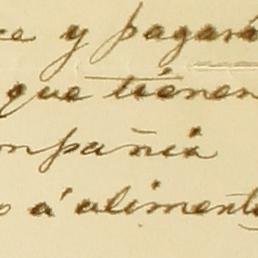 ce y pagará
que tienen
ompañia
o á aliment